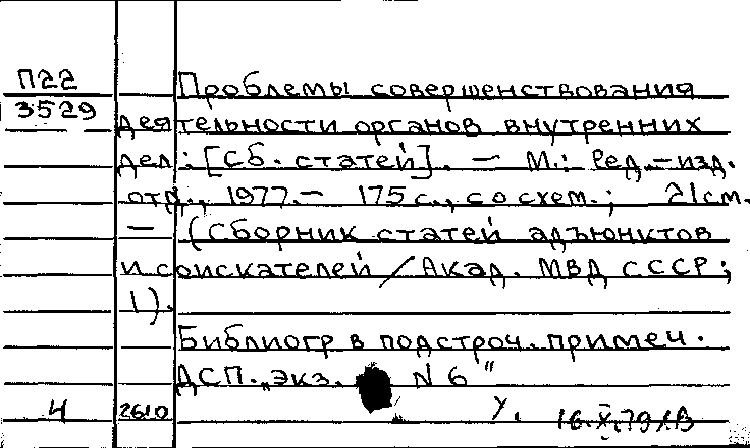 П22
Проблемы совершенствования
3529
деятельности органов внутренних
дел: [Сб. статей]. — М.: Ред.-изд.
отд., 1977. — 175 с., со схем.; 21см.
— (Сборник статей адъюнктов
и соискателей / Акад. МВД СССР;
1).
Библиогр в подстроч. примеч.
ДСП. „экз. N 6"
4 2610 У. 16.X.79